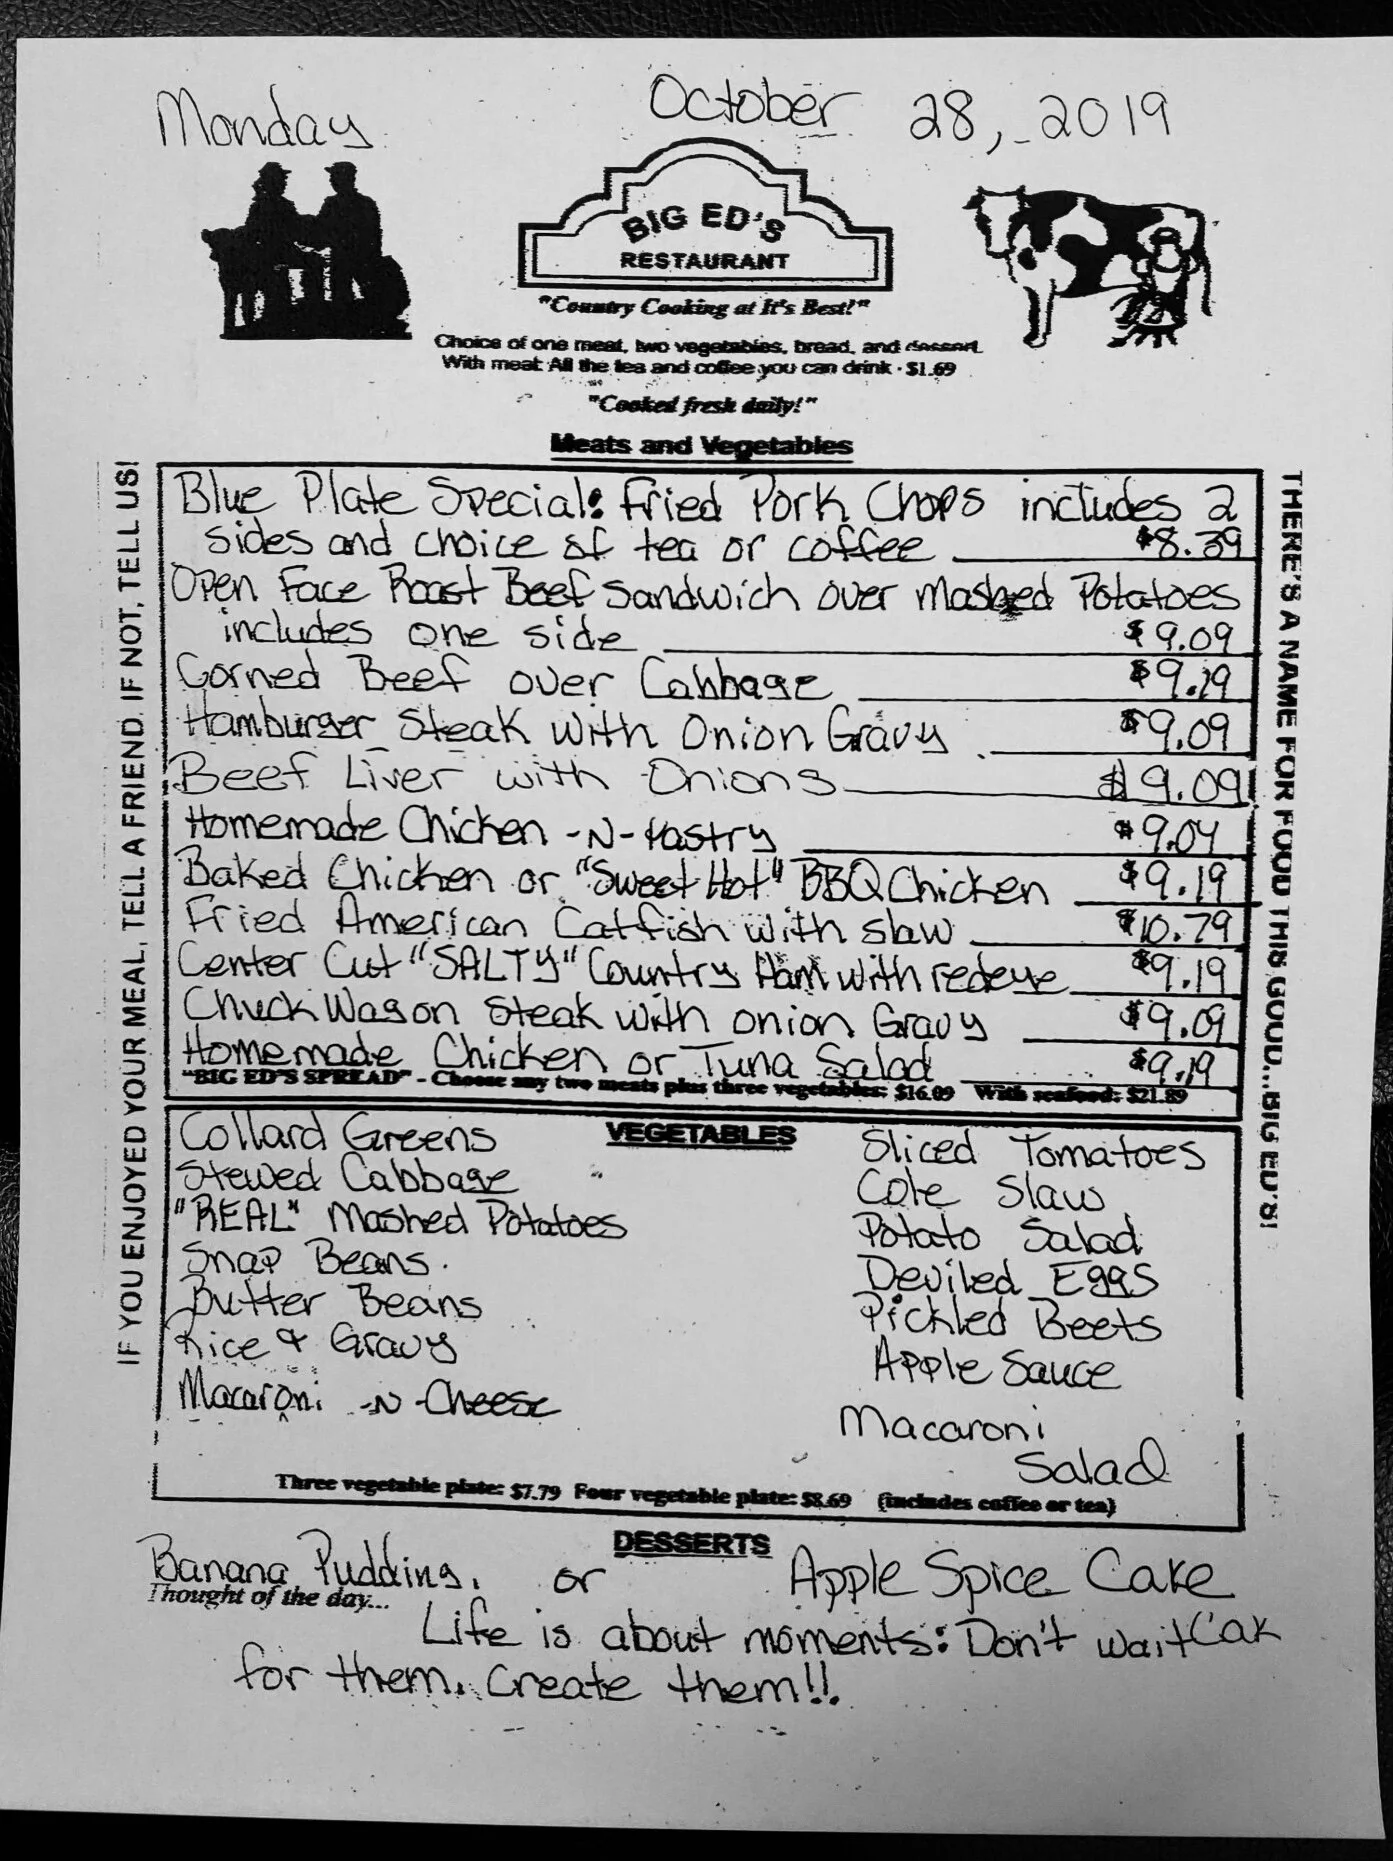 Monday October 28, 2019
BIG ED'S
RESTAURANT
"Country Cooking at It's Best!"
Choice of one meat, two vegetables, bread, and dessert.
With meat: All the tea and coffee you can drink - $1.69
"Cooked fresh daily!"
Meats and Vegetables
IF YOU ENJOYED YOUR MEAL, TELL A FRIEND. IF NOT, TELL US!
Blue Plate Special: Fried Pork Chops includes 2
sides and choice of tea or coffee $8.39
Open Face Roast Beef Sandwich over Mashed Potatoes
includes one side $9.09
Corned Beef over Cabbage $9.19
Hamburger Steak with Onion Gravy $9.09
Beef Liver with Onions $9.09
Homemade Chicken -N- Pastry $9.09
Baked Chicken or "Sweet Hot" BBQ Chicken $9.19
Fried American Catfish with slaw $10.79
Center Cut "SALTY" Country Ham with redeye $9.19
Chuck Wagon Steak with onion Gravy $9.09
Homemade Chicken or Tuna Salad $9.19
"BIG ED'S SPREAD" - Choose any two meats plus three vegetables: $16.09 With seafood: $21.89
THERE'S A NAME FOR FOOD THIS GOOD...BIG ED'S!
VEGETABLES
Collard Greens
Stewed Cabbage
"REAL" Mashed Potatoes
Snap Beans.
Butter Beans
Rice & Gravy
Macaroni -N- Cheese
Sliced Tomatoes
Cole Slaw
Potato Salad
Deviled Eggs
Pickled Beets
Apple Sauce
Macaroni
Salad
Three vegetable plate: $7.79 Four vegetable plate: $8.69 (includes coffee or tea)
DESSERTS
Banana Pudding. or Apple Spice Cake
Thought of the day...
Life is about moments: Don't wait Cak
for them. Create them!!.